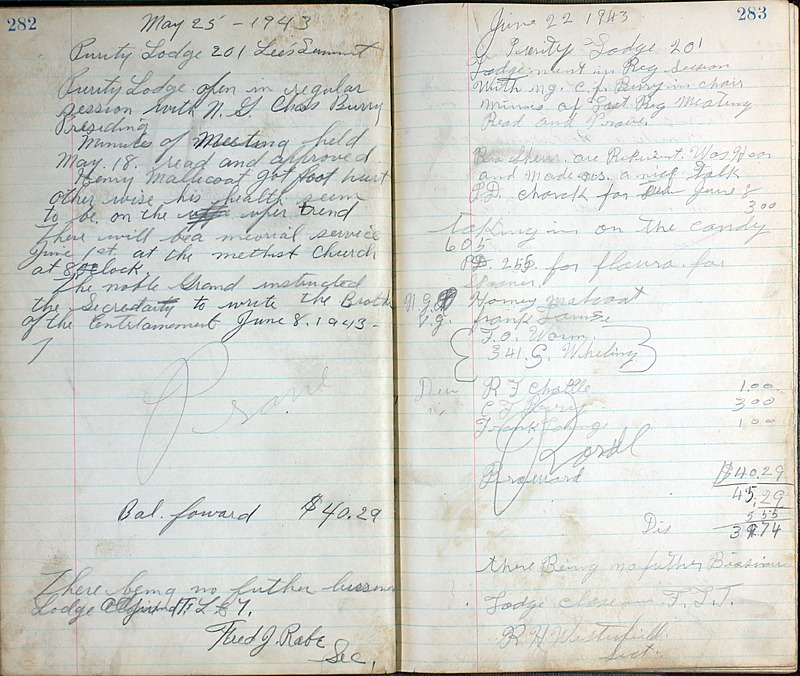 282
May 25 - 1943
Purity Lodge 201 Lees Summit
Purity Lodge open in regular
session with N. G Chas Burry
Presiding
Minutes of Meeting held
May. 18. read and approved.
Henry Mallicoat got foot hurt
other wise his health seem
to be on the uper trend
There will be a meorial service
June 1st. at the methist Church
at 8 oclock.
The noble Grand instructed
the Secredaity to write the Broth
of the Entertainement June 8. 1943-
7
Bal. foward $40.29
There being no futher bussness
Lodge T. L &
Fred J. Rabe
Sec,
283
June 22 1943
Purity Lodge 201
Lodge in Reg Session
With ng. C. F. Burry in chair
minues of Last Reg Meating
Read and
are Was Hear
and Made us a nice Talk
P.D. for June 8
3 00
taking in on the candy
605
PD. 255 for flowrs for
N. G. Homey
V. g. Frank
T. O. Worm
341 S. Wheling
Dew R F 1.00
" C F Berry 3 00
Frank 1 00
$40.29
45.29
5 55
Dis 39.74
there Being no futher Bissiness
Lodge close in F. L. T.
R H Westerfield
Sect.